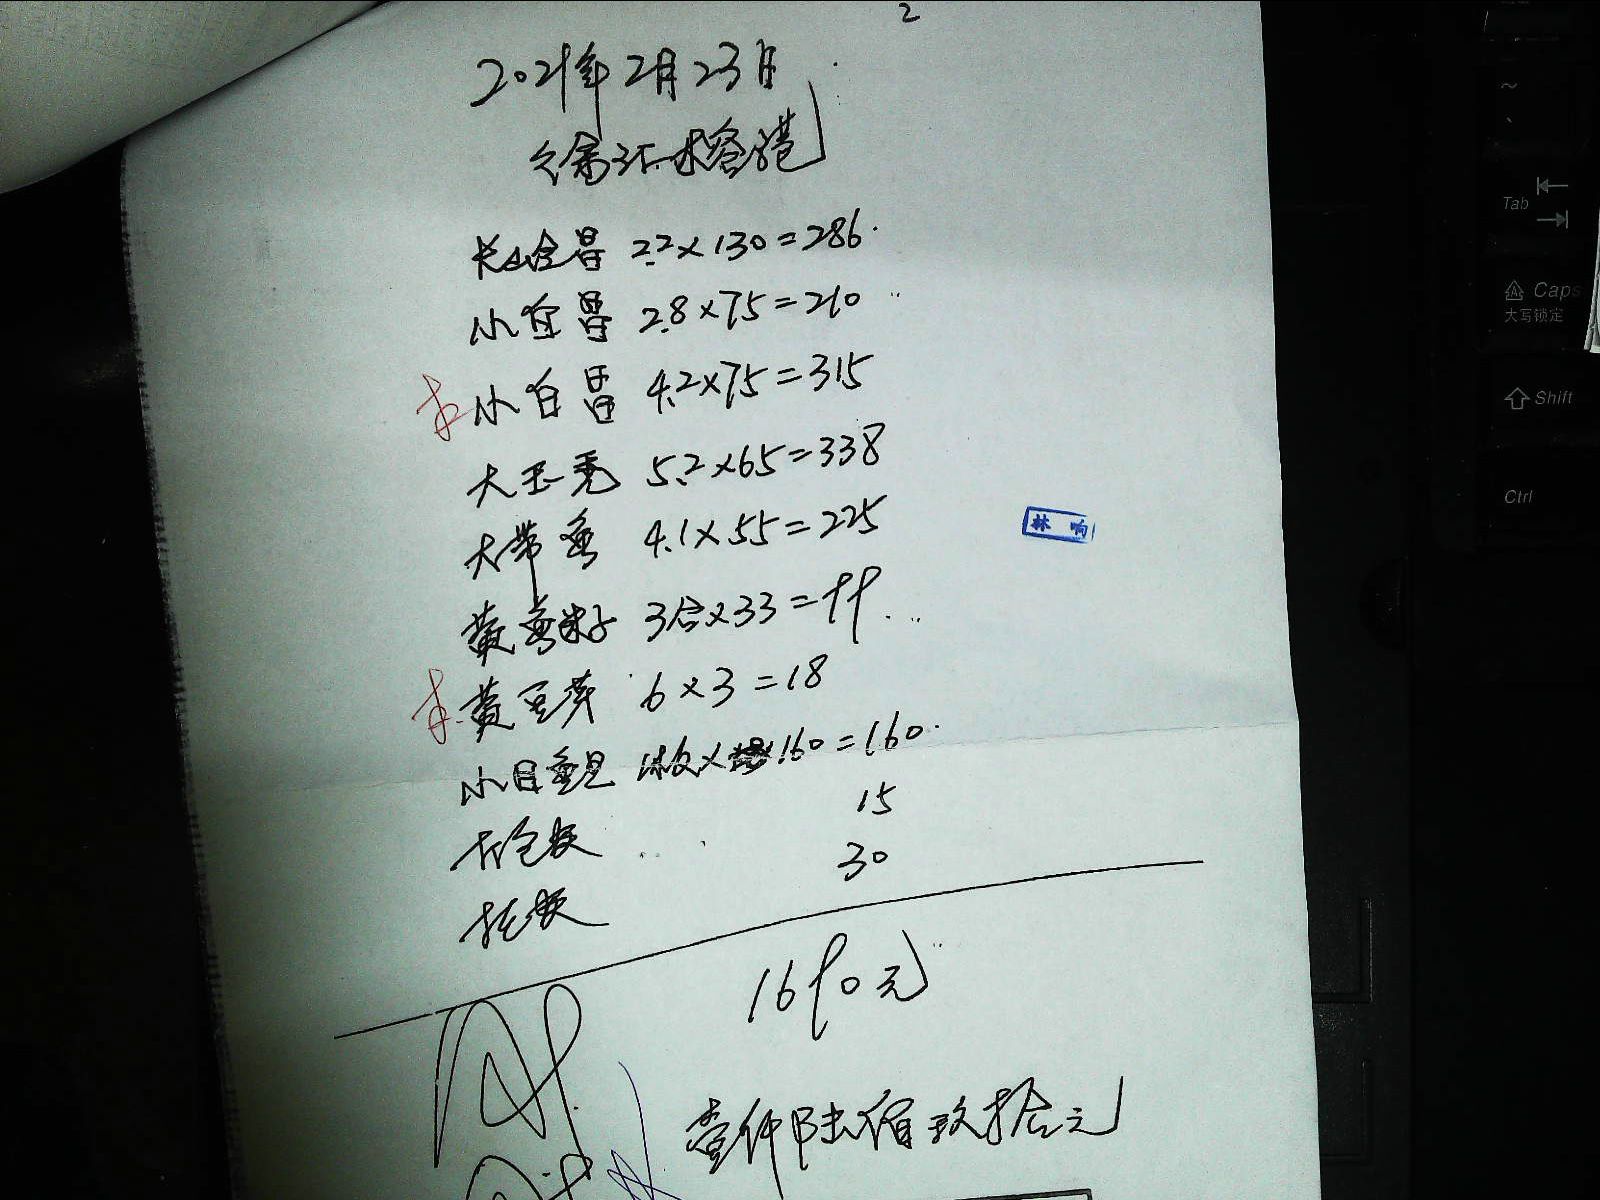 2
2021年2月23日
徐汇榕港
长山仓昌 2.2×130=286
小白昌 2.8×75=210
小白昌 4.2×75=315
大玉秃 5.2×65=338
大带鱼 4.1×55=225
林 响
黄鱼籽 3合×33=99
黄豆芽 6×3=18
小目鱼 160=160
打包费 15
托费 30
1690元
壹仟陆佰玖拾元
~
Tab
Caps
大写锁定
Shift
Ctrl